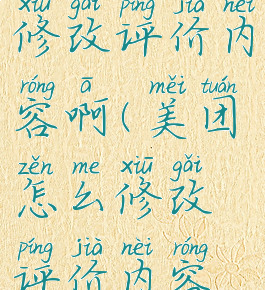 xiū gǎi píng jià nèi
修改评价内
róng ā měi tuán
容啊(美团
zěn me xiū gǎi
怎么修改
píng jià nèi róng
评价内容